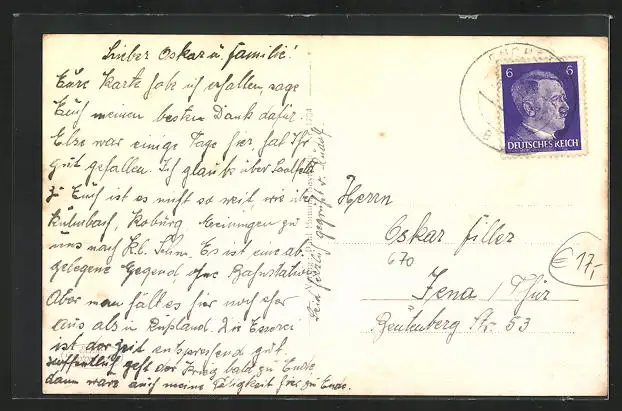 Lieber Oskar u. Familie!
Eure Karte habe ich erhalten, sage
Euch meinen besten Dank dafür.
Else war einige Tage hier, hat Ihr
gut gefallen. Ich glaube über Saalfeld
zu Euch ist es nicht so weit, wie über
Kulmbach, Koburg, Meinungen zu
uns nach Kl. Schm. Es ist eine ab-
gelegene Gegend, ohne Bahnstation
Aber man hält es hier noch eher
aus als in Rußland. Die Esserei
ist der zeit entsprechend gut
hoffentlich geht der Krieg bald zu Ende
dann wäre auch meine Tätigkeit hier zu Ende.
Seid herzlich gegrüßt v. Rudolf
6 6
DEUTSCHES REICH
Herrn
Oskar Filler
670
Jena / Thür
Reutenberg Str. 53
€ 17,-